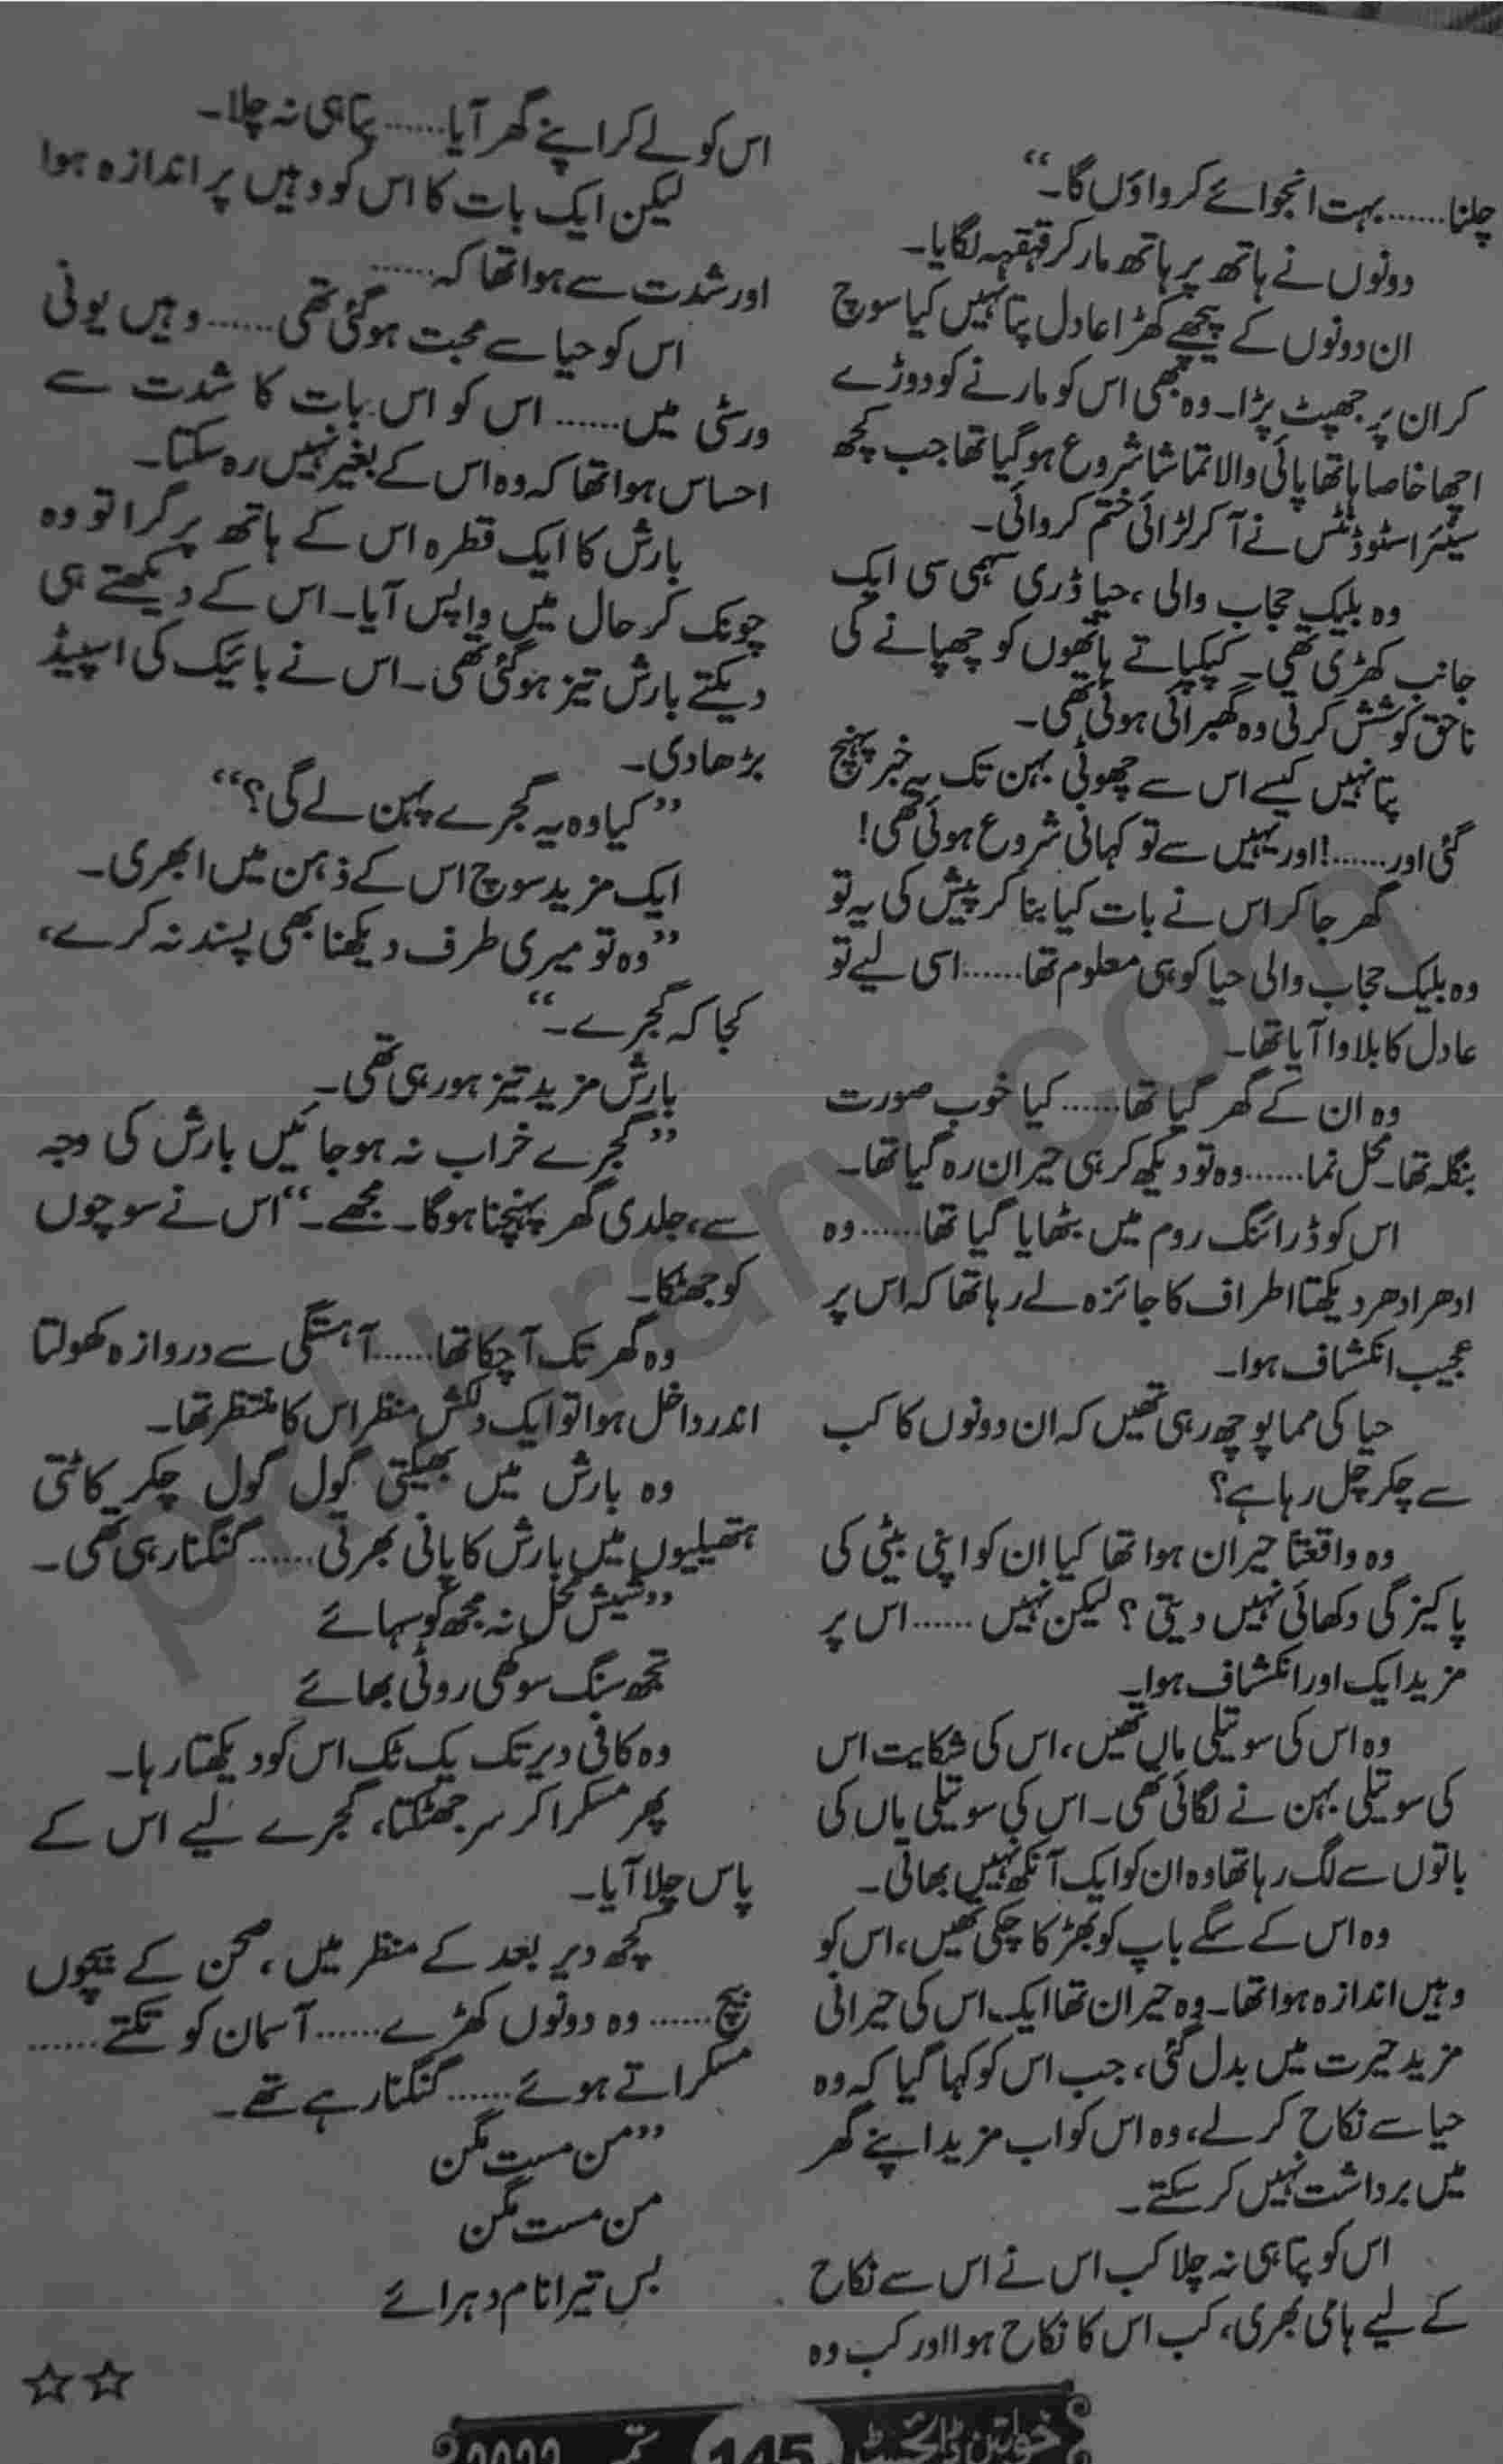 چلنا...... بہت انجوائے کرواؤں گا۔“
دونوں نے ہاتھ پر ہاتھ مار کر قہقہہ لگایا۔
ان دونوں کے پیچھے کھڑا عادل پتا نہیں کیا سوچ
کر ان پر جھپٹ پڑا۔ وہ بھی اس کو مارنے کو دوڑے
اچھا خاصا ہاتھا پائی والا تماشا شروع ہو گیا تھا جب کچھ
سینئر اسٹوڈنٹس نے آکر لڑائی ختم کروائی۔
وہ بلیک حجاب والی، حیا ڈری سہمی سی ایک
جانب کھڑی تھی۔ کپکپاتے ہاتھوں کو چھپانے کی
ناحق کوشش کرتی وہ گھبرائی ہوئی تھی۔
پتا نہیں کیسے اس سے چھوٹی بہن تک یہ خبر پہنچ
گئی اور......! اور یہیں سے تو کہانی شروع ہوئی تھی!
گھر جا کر اس نے بات کیا بنا کر پیش کی یہ تو
وہ بلیک حجاب والی حیا کو ہی معلوم تھا...... اسی لیے تو
عادل کا بلاوا آیا تھا۔
وہ ان کے گھر گیا تھا...... کیا خوب صورت
بنگلہ تھا۔ محل نما...... وہ تو دیکھ کر ہی حیران رہ گیا تھا۔
اس کو ڈرائنگ روم میں بٹھایا گیا تھا...... وہ
ادھر ادھر دیکھتا اطراف کا جائزہ لے رہا تھا کہ اس پر
عجیب انکشاف ہوا۔
حیا کی مما پوچھ رہی تھیں کہ ان دونوں کا کب
سے چکر چل رہا ہے؟
وہ واقعتاً حیران ہوا تھا کیا ان کو اپنی بیٹی کی
پاکیزگی دکھائی نہیں دیتی؟ لیکن نہیں...... اس پر
مزید ایک اور انکشاف ہوا۔
وہ اس کی سوتیلی ماں تھیں، اس کی شکایت اس
کی سوتیلی بہن نے لگائی تھی۔ اس کی سوتیلی ماں کی
باتوں سے لگ رہا تھا وہ ان کو ایک آنکھ نہیں بھاتی۔
وہ اس کے سگے باپ کو بھڑکا چکی تھیں، اس کو
وہیں اندازہ ہوا تھا۔ وہ حیران تھا ایک اس کی حیرانی
مزید حیرت میں بدل گئی، جب اس کو کہا گیا کہ وہ
حیا سے نکاح کر لے، وہ اس کو اب مزید اپنے گھر
میں برداشت نہیں کر سکتے۔
اس کو پتا ہی نہ چلا کب اس نے اس سے نکاح
کے لیے ہامی بھری، کب اس کا نکاح ہوا اور کب وہ
اس کو لے کر اپنے گھر آیا...... پتا ہی نہ چلا۔
لیکن ایک بات کا اس کو وہیں پر اندازہ ہوا
اور شدت سے ہوا تھا کہ......
اس کو حیا سے محبت ہو گئی تھی...... وہیں یونی
ورسٹی میں...... اس کو اس بات کا شدت سے
احساس ہوا تھا کہ وہ اس کے بغیر نہیں رہ سکتا۔
بارش کا ایک قطرہ اس کے ہاتھ پر گرا تو وہ
چونک کر حال میں واپس آیا۔ اس کے دیکھتے ہی
دیکتے بارش تیز ہو گئی تھی۔ اس نے بائیک کی اسپیڈ
بڑھا دی۔
”کیا وہ یہ گجرے پہن لے گی؟“
ایک مزید سوچ اس کے ذہن میں ابھری۔
”وہ تو میری طرف دیکھنا بھی پسند نہ کرے،
کجا کہ گجرے۔“
بارش مزید تیز ہو رہی تھی۔
”گجرے خراب نہ ہو جائیں بارش کی وجہ
سے، جلدی گھر پہنچنا ہوگا۔ مجھے۔“ اس نے سوچوں
کو جھٹکا۔
وہ گھر تک آچکا تھا...... آہستگی سے دروازہ کھولتا
اندر داخل ہوا تو ایک دلکش منظر اس کا منتظر تھا۔
وہ بارش میں بھیگتی گول گول چکر کاٹتی
ہتھیلیوں میں بارش کا پانی بھرتی...... گنگنا رہی تھی۔
”شیش محل نہ مجھ کو سہائے
تجھ سنگ سوکھی روٹی بھائے
وہ کافی دیر تک یک ٹک اس کو دیکھتا رہا۔
پھر مسکرا کر سر جھٹکتا، گجرے لیے اس کے
پاس چلا آیا۔
کچھ دیر بعد کے منظر میں، صحن کے بیچوں
بیچ...... وہ دونوں کھڑے...... آسمان کو تکتے......
مسکراتے ہوئے...... گنگنا رہے تھے۔
”من مست مگن
من مست مگن
بس تیرا نام دہرائے
☆☆
خواتین ڈائجسٹ 145 ستمبر 2022